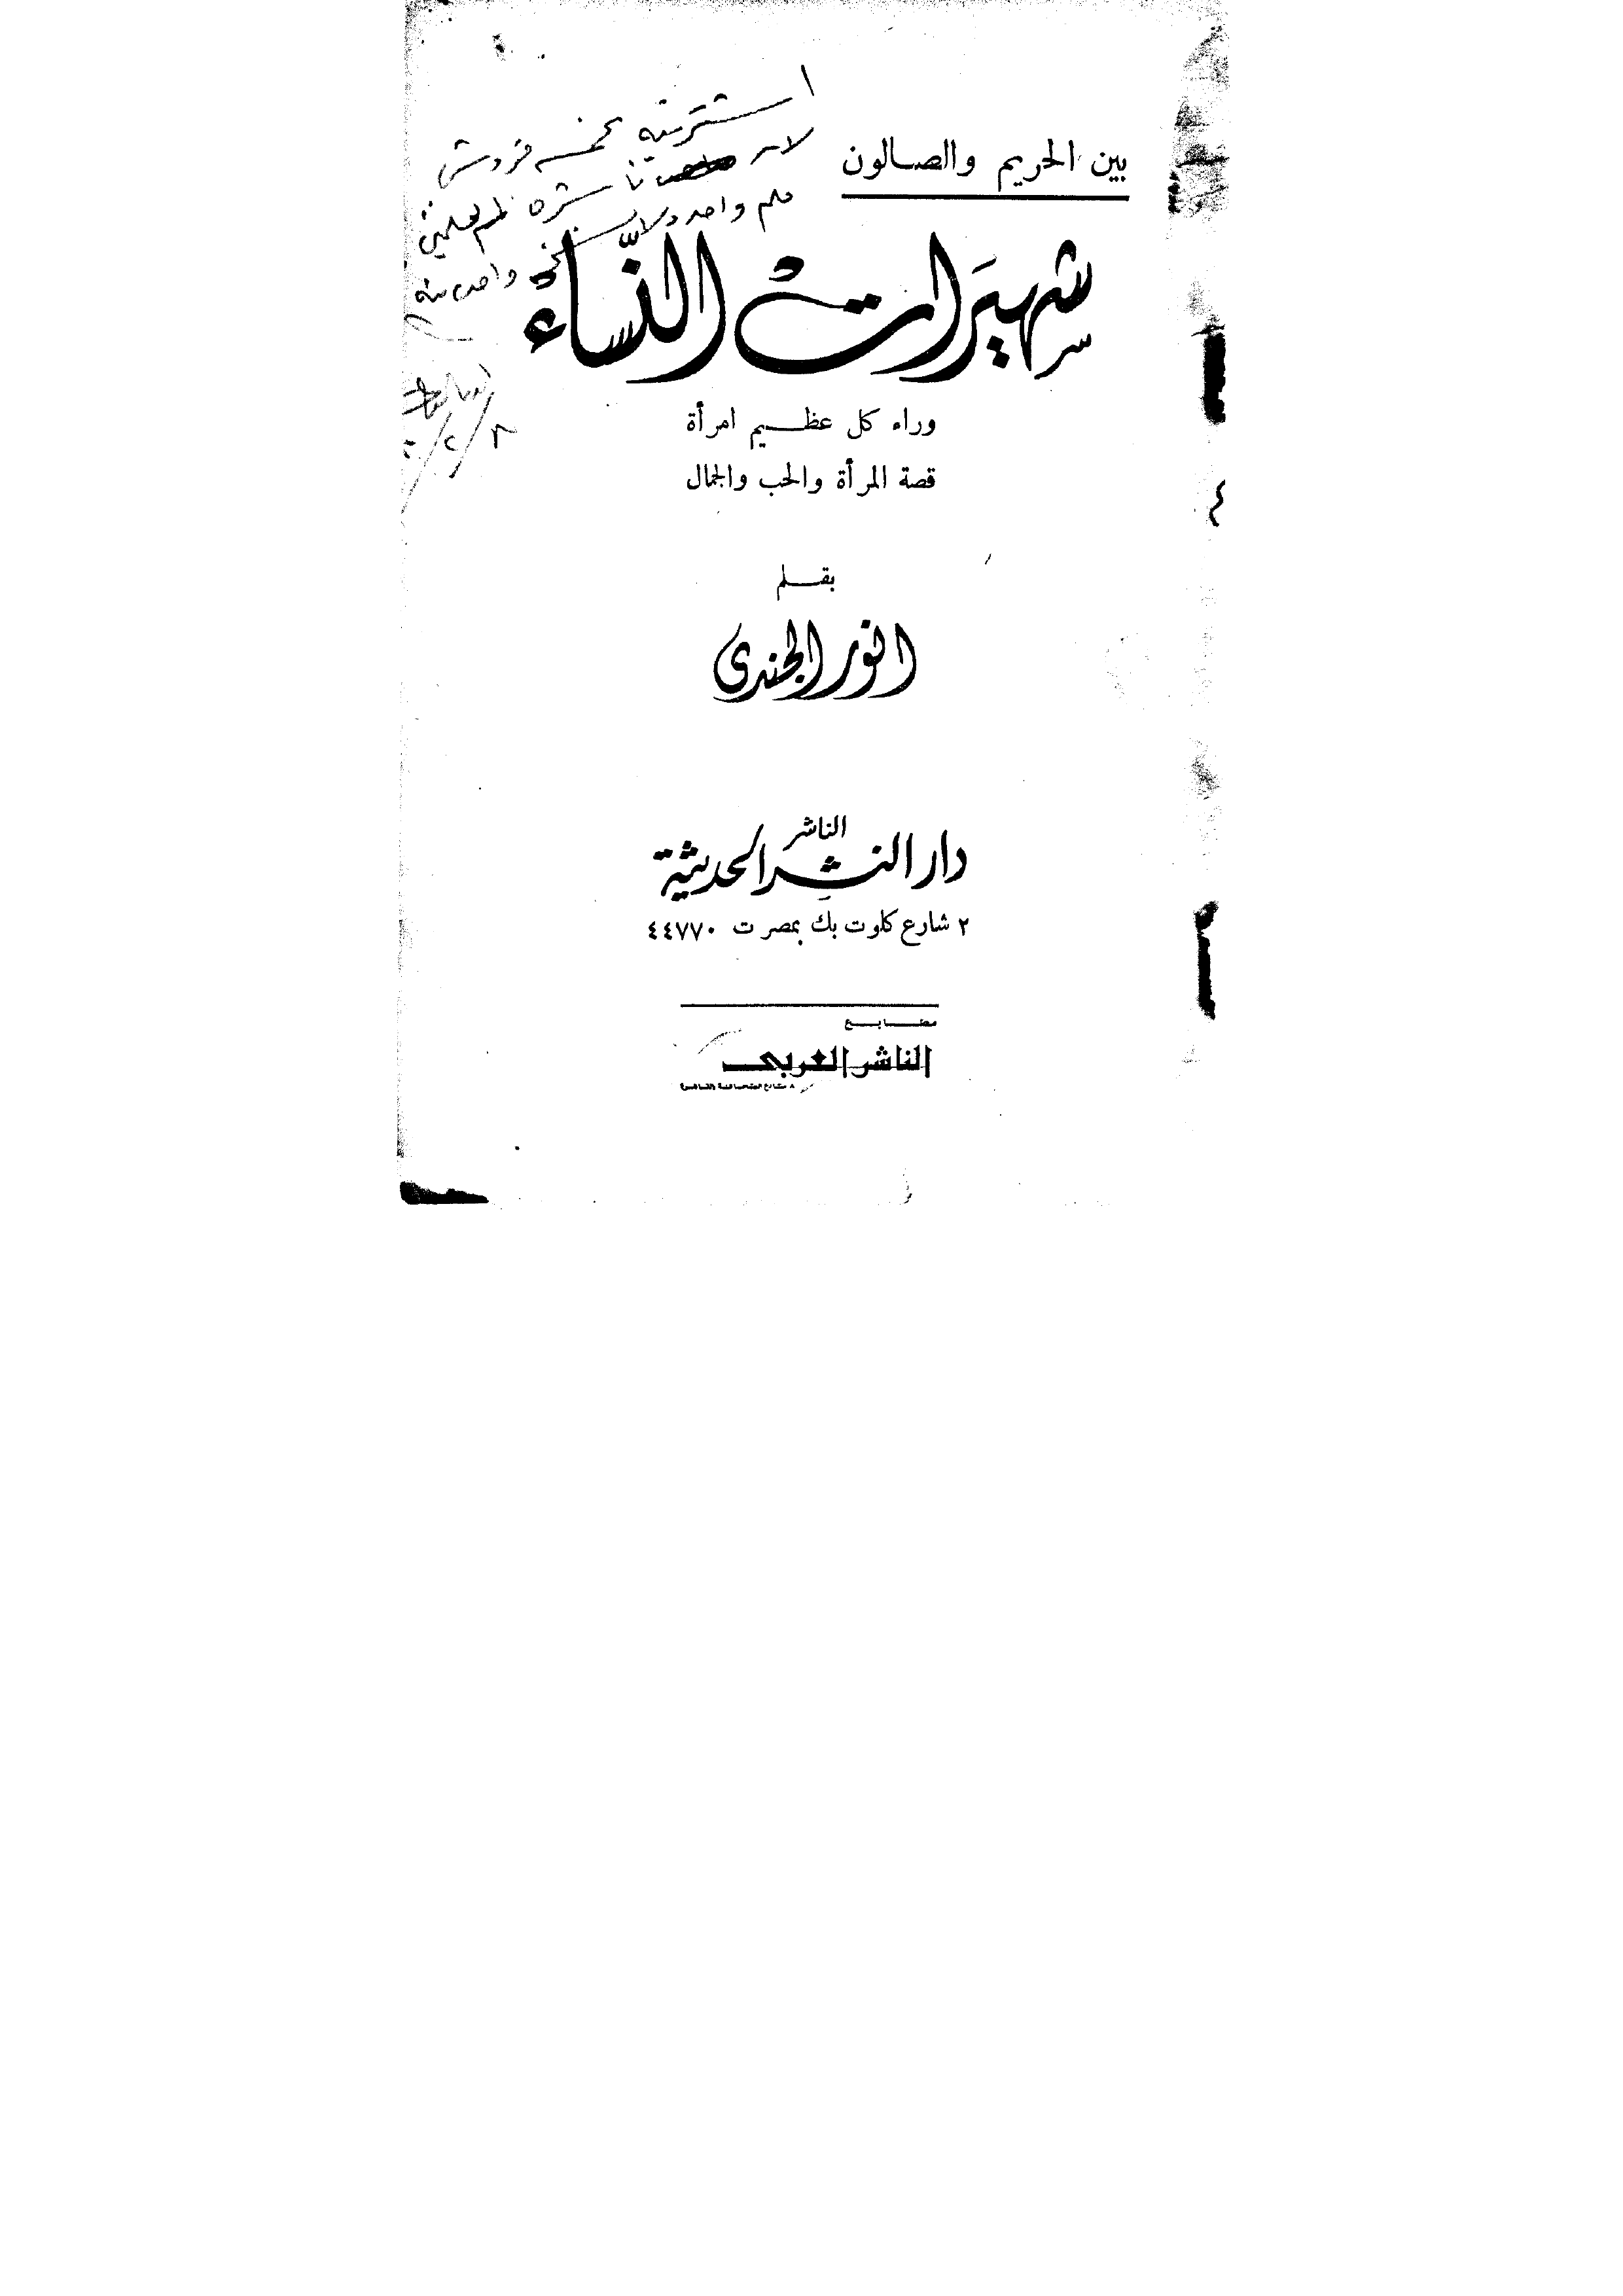 اشتريته بخمسة قروش
لأن ناشره لم
بين الحريم والصالون
شهيرات النساء
وراء كل عظيم امرأة
قصة المرأة والحب والجمال
بقلم
انور الجندى
الناشر
دار النشر الحديثة
٢ شارع كلوت بك بمصر ت ٤٤٧٧٠
مطابع
الناشر العربى